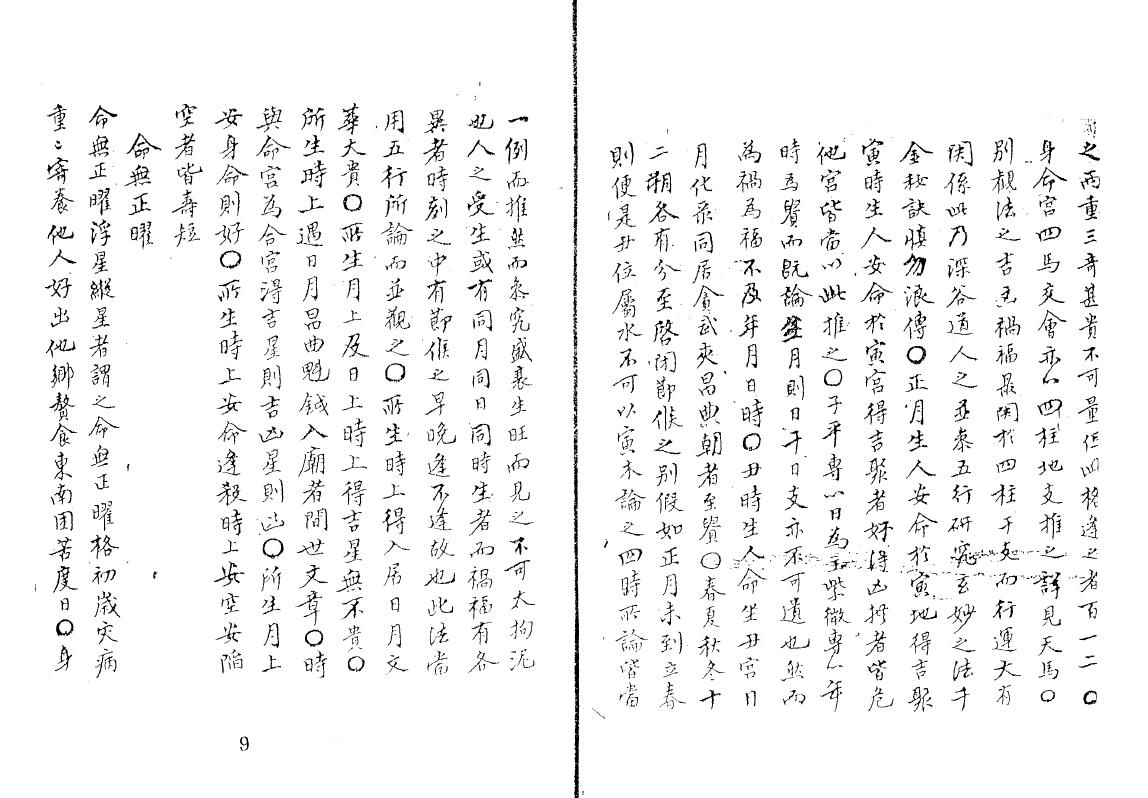 之而重三奇甚貴不可量但此格逢之者百一二〇
身命宮四馬交會亦以四柱地支推之詳見天馬〇
別観法之吉凶禍福最関於四柱干支而行運大有
関係此乃深谷道人之並叅五行研究玄妙之法千
金秘訣慎勿浪傳〇正月生人安命於寅地得吉聚
寅時生人安命於寅宮得吉聚者好得凶拱者皆危
他宮皆當以此推之〇子平專以日為主紫微專以年
時為貴而既論生月則日干日支亦不可遺也然而
為禍為福不及年月日時〇丑時生人命坐丑宮日
月化录同居貪武夾昌曲朝者至貴〇春夏秋冬十
二朔各有分至啓閉節候之別假如正月未到立春
則便是丑位屬水不可以寅木論之四時所論皆當
一例而推並而叅究盛衰生旺而見之不可太拘泥
也人之受生或有同月同日同時生者而禍福有各
異者時刻之中有節候之早晚逢不逢故也此法當
用五行所論而並觀之〇所生時上得入居日月文
華大貴〇所生月上及日上時上得吉星無不貴〇
所生時上遇日月昌曲魁鉞入廟者間世文章〇時
與命宮為合宮得吉星則吉凶星則凶〇所生月上
安身命則好〇所生時上安命逢殺時上安空安陷
空者皆壽短
命無正曜
命無正曜浮星縱星者謂之命無正曜格初歲灾病
重〻寄養他人好出他鄉贅食東南困苦度日〇身
9